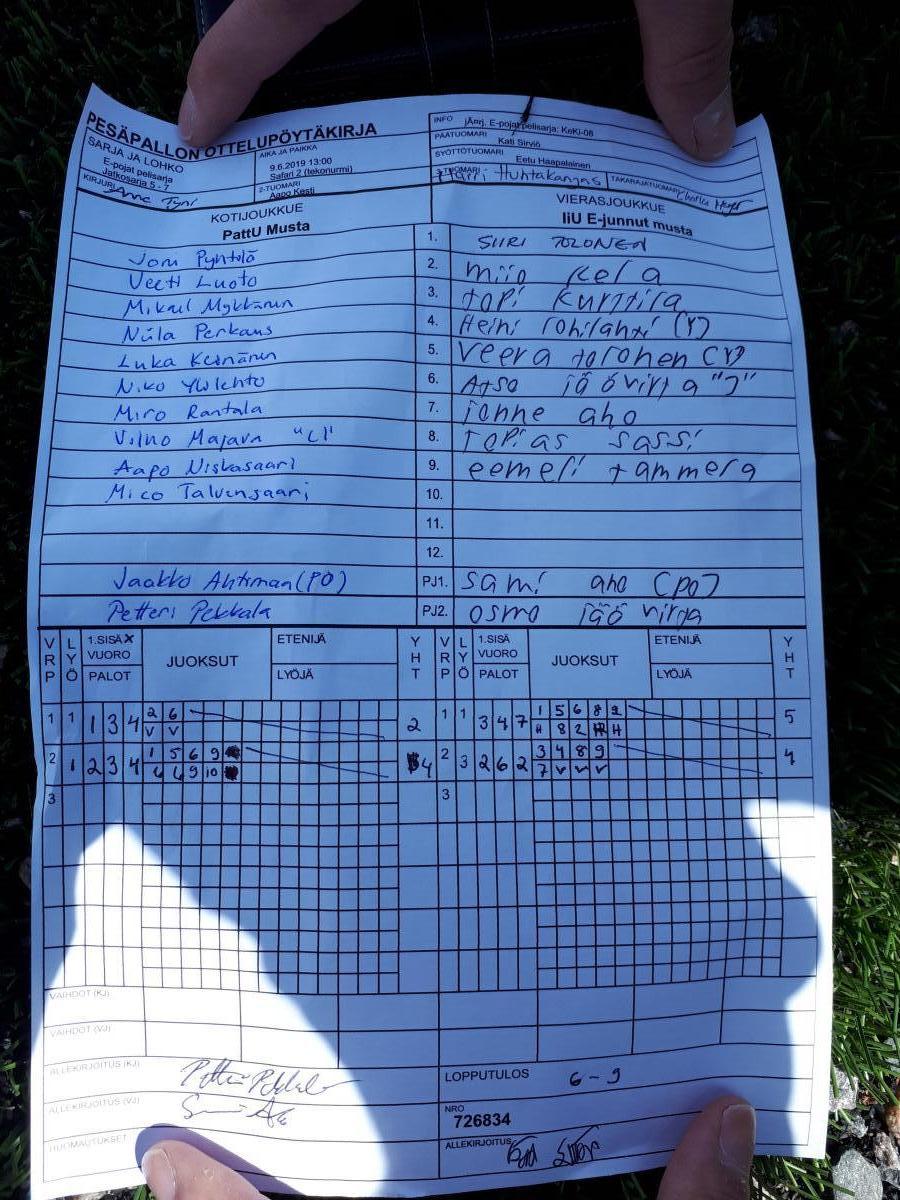 PESÄPALLON OTTELUPÖYTÄKIRJA
SARJA JA LOHKO
E-pojat pelisarja
Jatkosarja 5 - 7
AIKA JA PAIKKA
9.6.2019 13:00
Safari 2 (tekonurmi)
KIRJURI
2-TUOMARI
Aapo Kesti
INFO jÄnrj. E-pojat pelisarja: KeKi-08
PÄÄTUOMARI
Kati Sirviö
SYÖTTÖTUOMARI
Eetu Haapalainen
3-TUOMARI
Harri Huhtakangas
TAKARAJATUOMARI
KOTIJOUKKUE
PattU Musta
VIERASJOUKKUE
IiU E-junnut musta
1. SIIRI TOLONEN
Veeti Luoto 2.
Mikael Mykkänen 3. topi kurttila
Niila Perkaus 4. Heini
Luka Keinänen 5. Veera
Niko Ylilehto 6. Atso jäävirta "J"
Miro Rantala 7. janne aho
Majava 8. topias sassi
Aapo Niskasaari 9. eemeli tammela
Mico Talvensaari 10.
11.
12.
Jaakko Ahtiman (PO) PJ1. sami aho (po)
Petteri Pekkala PJ2. osmo jäävirta
VRP LYÖ 1.SISÄ X VUORO PALOT JUOKSUT ETENIJÄ LYÖJÄ YHT VRP LYÖ 1.SISÄ VUORO PALOT JUOKSUT ETENIJÄ LYÖJÄ YHT
1 1 1 3 4 2 6 2 1 1 3 4 7 1 5 6 8 9 5
V V
2 1 2 3 4 1 5 6 9 4 2 3 2 6 2 3 4 8 9 4
6 6 9 10 7 V V V
3 3
VAIHDOT (KJ)
VAIHDOT (VJ)
ALLEKIRJOITUS (KJ)
LOPPUTULOS 6-9
ALLEKIRJOITUS (VJ)
NRO
726834
HUOMAUTUKSET
ALLEKIRJOITUS